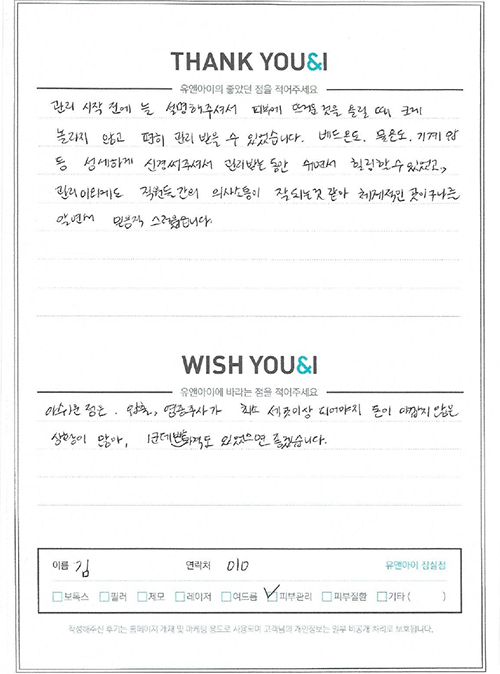 THANK YOU&I
유앤아이의 좋았던 점을 적어주세요
관리 시작 전에 늘 설명해주셔서 피부에 뜨거운 것을 올릴 때 크게
놀라지 않고 편히 관리 받을 수 있었습니다. 베드온도, 물온도, 기계 압
등 섬세하게 신경써주셔서 관리받는 동안 쉬면서 힐링할 수 있었고,
관리 이외에도 직원들간의 의사소통이 잘 되는것 같아 체계적인 곳이구나를
알면서 믿음직 스러웠습니다.
WISH YOU&I
유앤아이에 바라는 점을 적어주세요
아쉬운 점은, 압출, 염증주사가 최소 세 곳이상 되어야지 돈이 아깝지 않은
상황이 많아, 1군데 가격도 있었으면 좋겠습니다.
이름 김 연락처 010 유앤아이 잠실점
보톡스 필러 제모 레이저 여드름 피부관리 피부질환 기타 ( )
작성해주신 후기는 홈페이지 게재 및 마케팅 용도로 사용되며 고객님의 개인정보는 일부 비공개 처리로 보호됩니다.